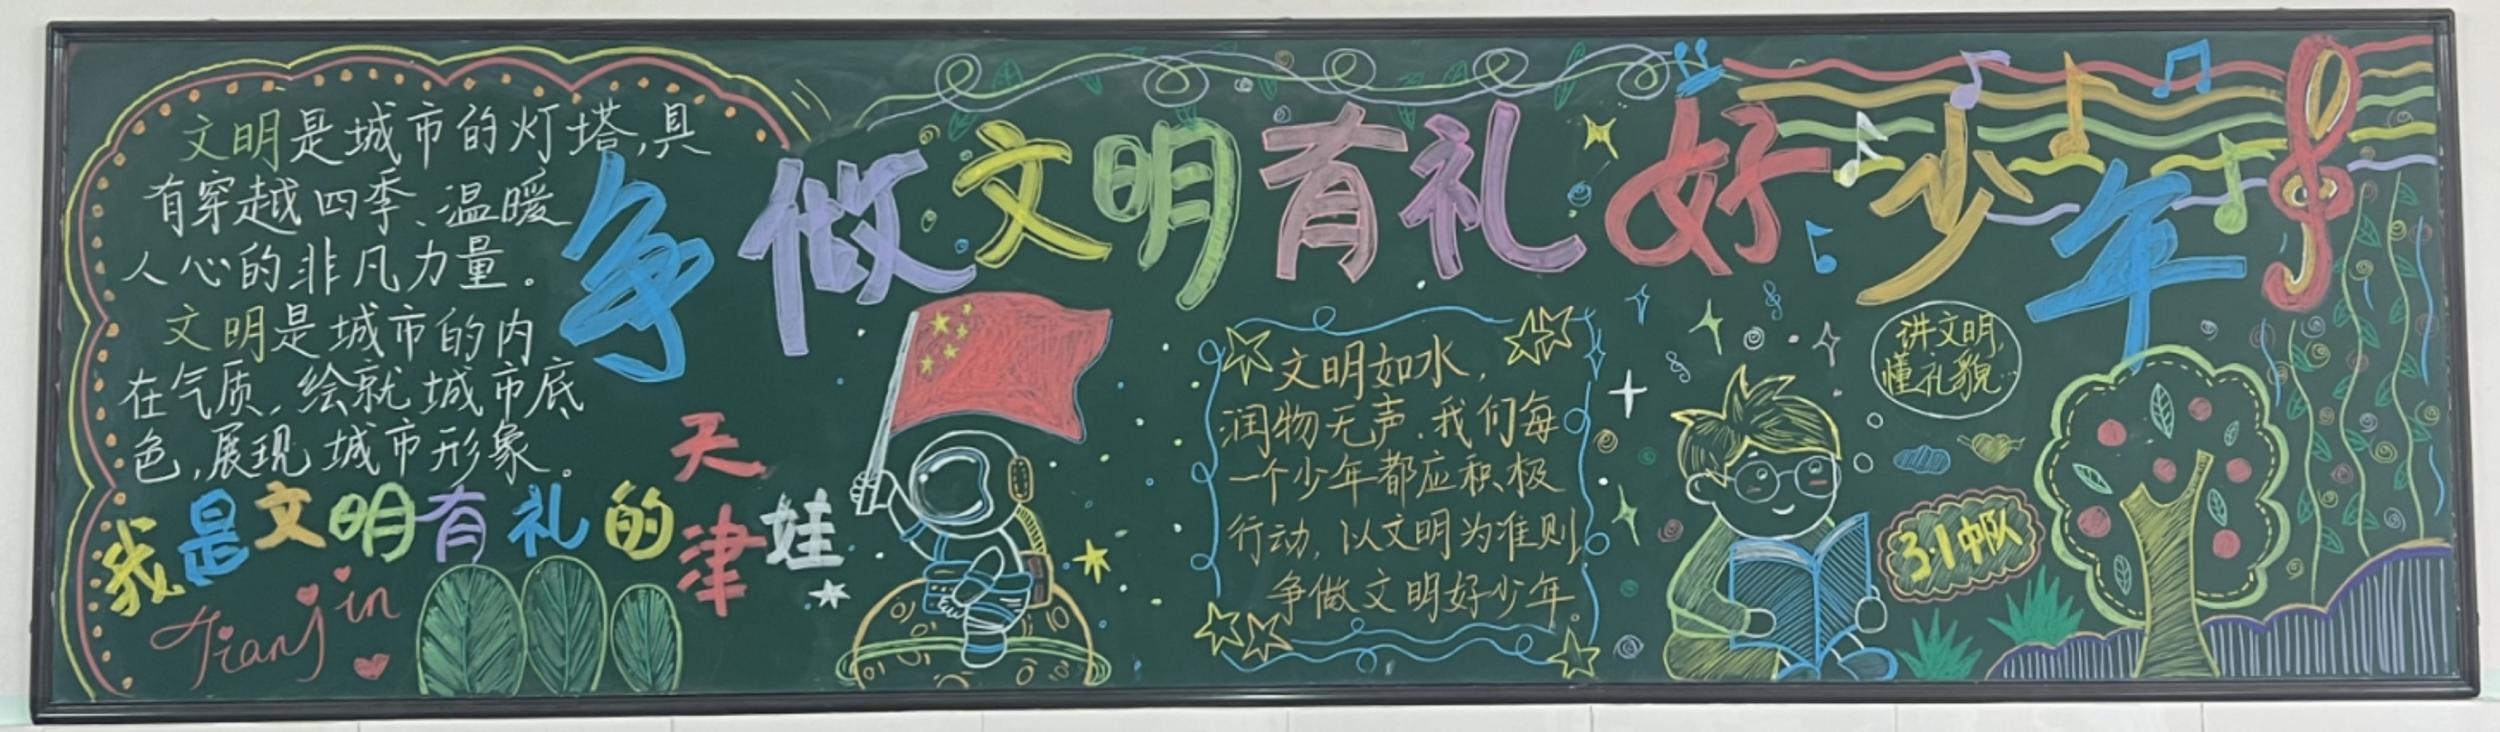 文明是城市的灯塔,具
有穿越四季、温暖
人心的非凡力量。
文明是城市的内
在气质,绘就城市底
色,展现城市形象。
争做文明有礼好少年
我是文明有礼的天津娃
Tianjin
文明如水,
润物无声.我们每
一个少年都应积极
行动,以文明为准则,
争做文明好少年.
讲文明,
懂礼貌
3·1中队